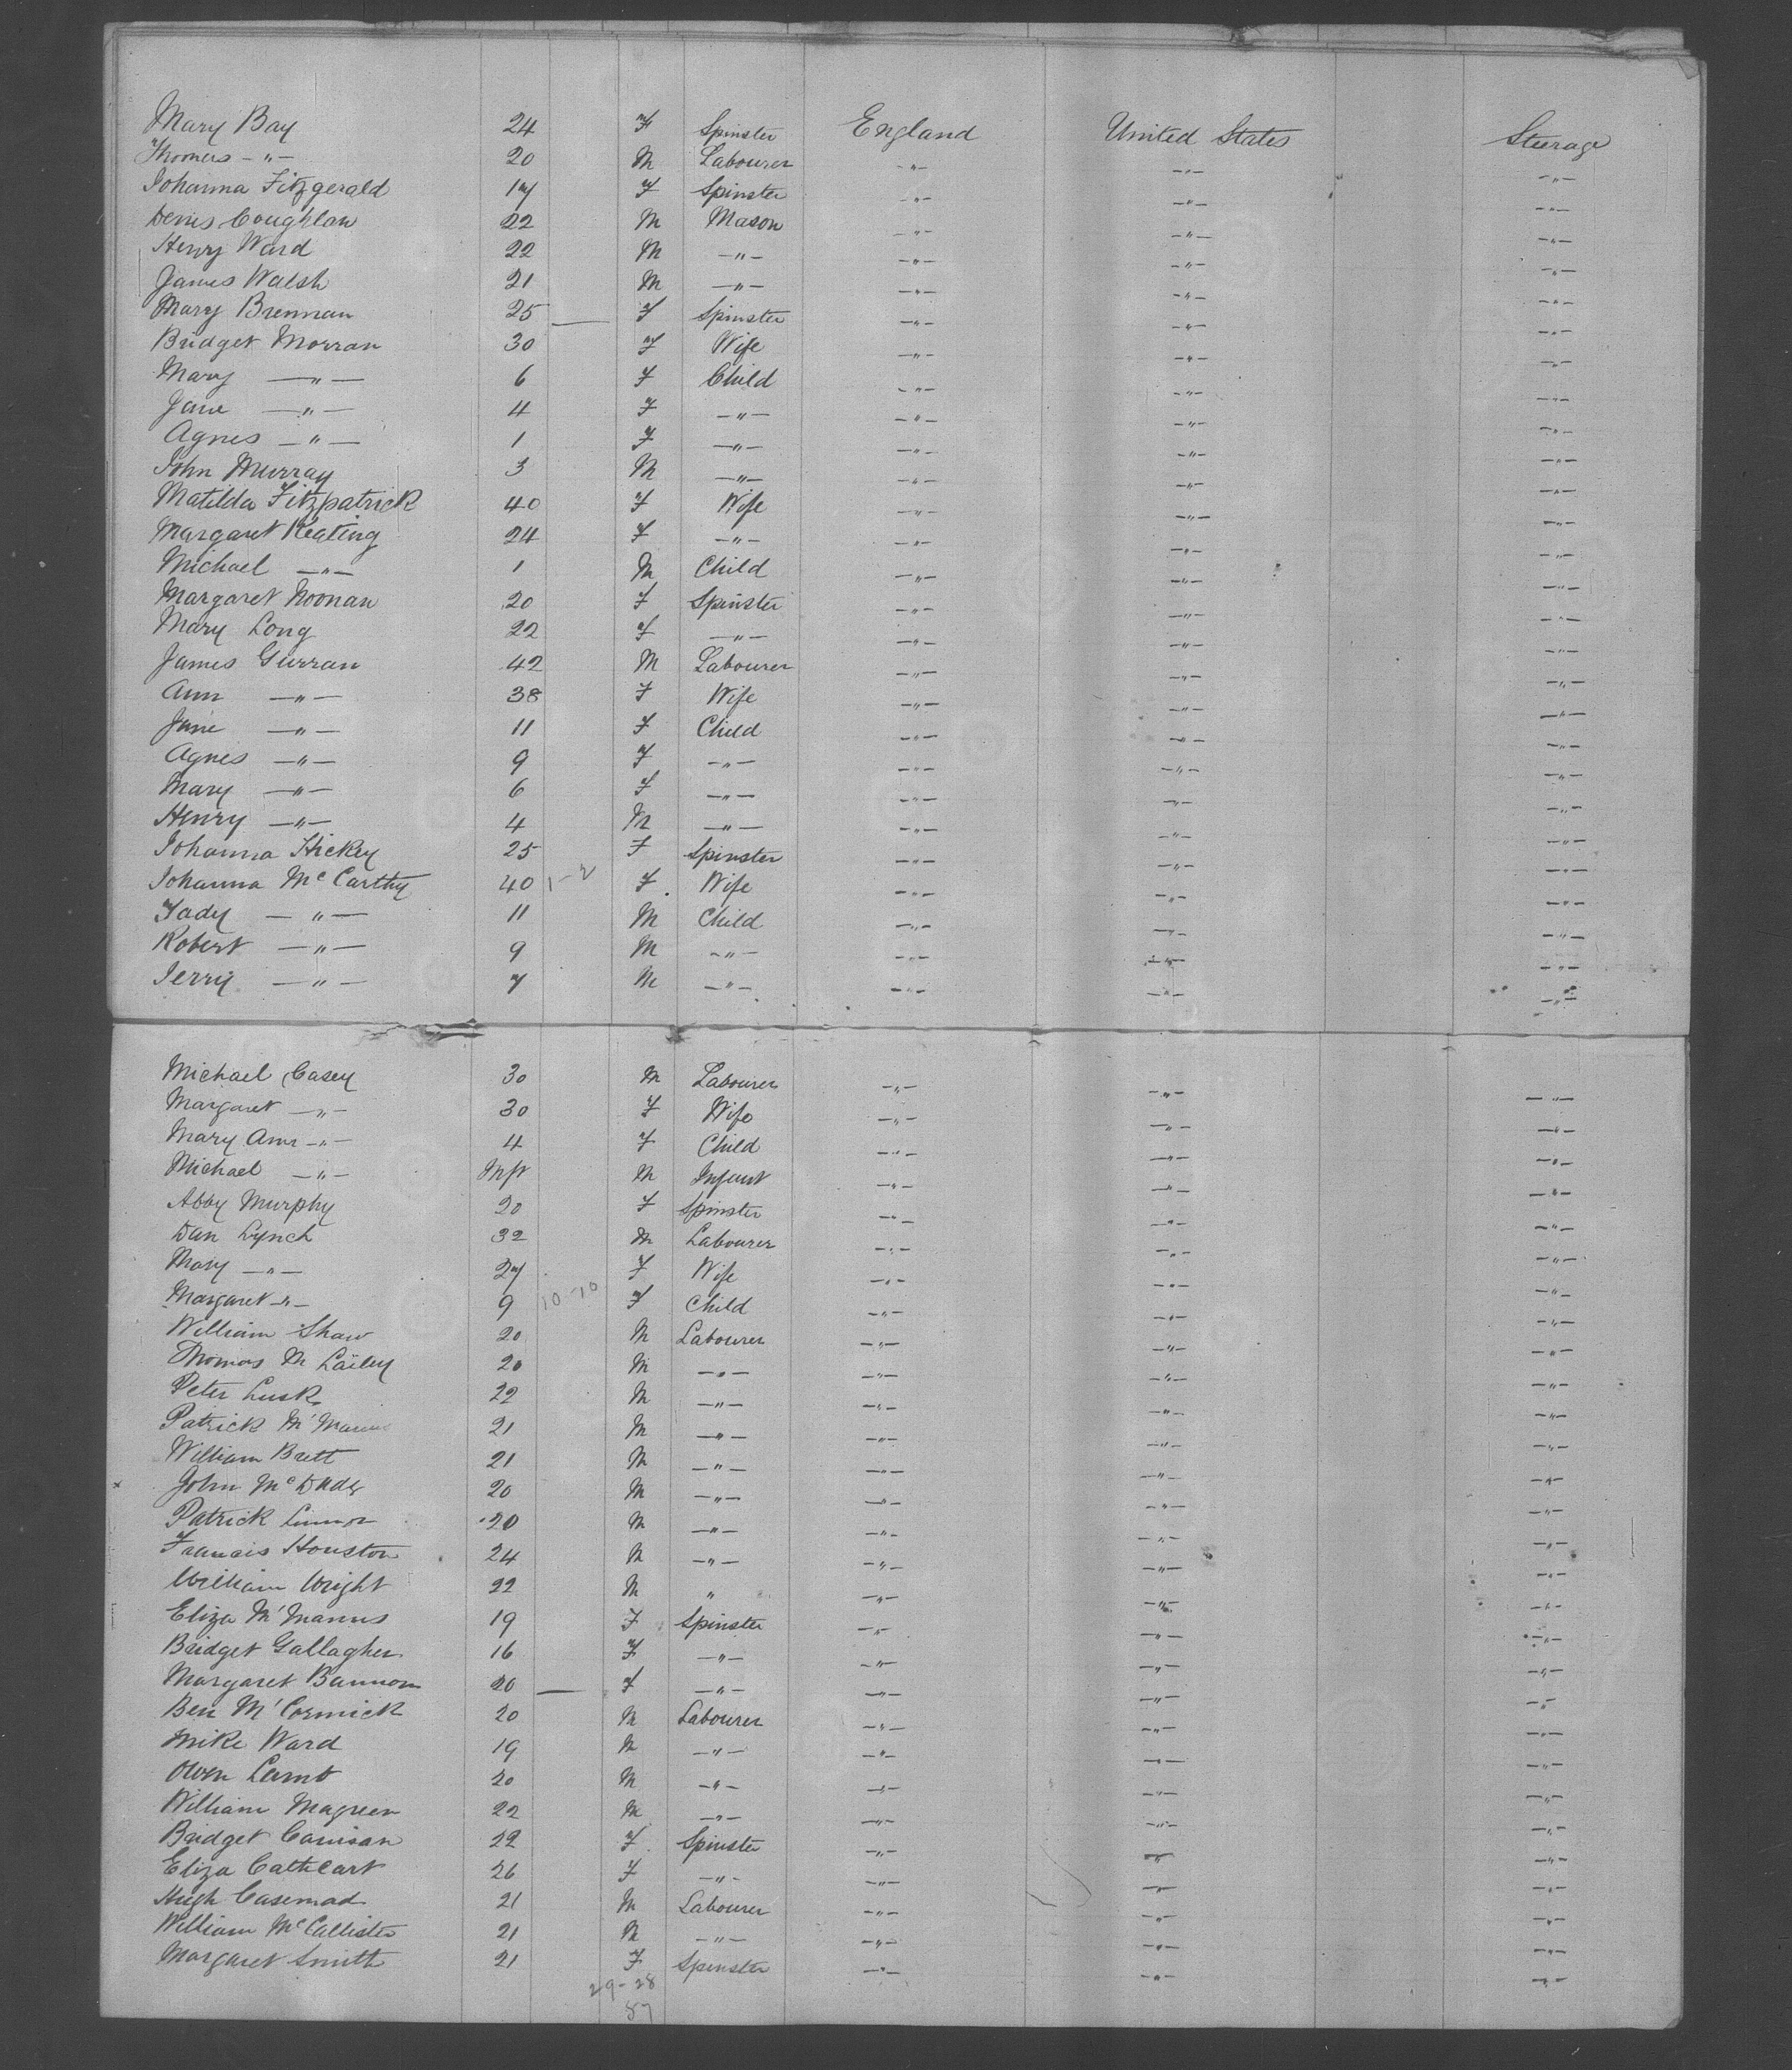 Mary Bay 24 F Spinster England United States Steerage
Thomas -"- 20 M Labourer -"- -"- -"-
Johanna Fitzgerald 17 F Spinster -"- -"- -"-
Denis Coughlan 22 M Mason -"- -"- -"-
Henry Ward 22 M -"- -"- -"- -"-
James Walsh 21 M -"- -"- -"- -"-
Mary Brennan 25 — F Spinster -"- -"- -"-
Bridget Morran 30 F Wife -"- -"- -"-
Mary -"- 6 F Child -"- -"- -"-
Jane -"- 4 F -"- -"- -"- -"-
Agnes -"- 1 F -"- -"- -"- -"-
John Murray 3 M -"- -"- -"- -"-
Matilda Fitzpatrick 40 F Wife -"- -"- -"-
Margaret Keating 24 F -"- -"- -"- -"-
Michael -"- 1 M Child -"- -"- -"-
Margaret Noonan 20 F Spinster -"- -"- -"-
Mary Long 22 F -"- -"- -"- -"-
James Gurran 42 M Labourer -"- -"- -"-
Ann -"- 38 F Wife -"- -"- -"-
Jane -"- 11 F Child -"- -"- -"-
Agnes -"- 9 F -"- -"- -"- -"-
Mary -"- 6 F -"- -"- -"- -"-
Henry -"- 4 M -"- -"- -"- -"-
Johanna Hickey 25 F Spinster -"- -"- -"-
Johanna McCarthy 40 1-2 F Wife -"- -"- -"-
Tady -"- 11 M Child -"- -"- -"-
Robert -"- 9 M -"- -"- -"- -"-
Jerry -"- 7 M -"- -"- -"- -"-
Michael Casey 30 M Labourer -"- -"- -"-
Margaret -"- 30 F Wife -"- -"- -"-
Mary Ann -"- 4 F Child -"- -"- -"-
Michael -"- M Infant -"- -"- -"-
Abby Murphy 20 F Spinster -"- -"- -"-
Dan Lynch 32 M Labourer -"- -"- -"-
Mary -"- 27 F Wife -"- -"- -"-
Margaret -"- 9 10-10 F Child -"- -"- -"-
William Shaw 20 M Labourer -"- -"- -"-
Thomas M 20 M -"- -"- -"- -"-
Peter Lusk 22 M -"- -"- -"- -"-
Patrick M'Manus 21 M -"- -"- -"- -"-
William Brett 21 M -"- -"- -"- -"-
x John 20 M -"- -"- -"- -"-
Patrick 20 M -"- -"- -"- -"-
Francis Houston 24 M -"- -"- -"- -"-
William Wright 22 M " -"- -"- -"-
Eliza M'Manus 19 F Spinster -"- -"- -"-
Bridget Gallagher 16 F -"- -"- -"- -"-
Margaret Bannon 20 — F -"- -"- -"- -"-
Ben M'Cormick 20 M Labourer -"- -"- -"-
Mike Ward 19 M -"- -"- -"- -"-
Owen Lamb 20 M -"- -"- -"- -"-
William Magreen 22 M -"- -"- -"- -"-
Bridget 22 F Spinster -"- -"- -"-
Eliza Cathcart 26 F -"- -"- -"- -"-
Hugh Casemad 21 M Labourer -"- -"- -"-
William McCallister 21 M -"- -"- -"- -"-
Margaret Smith 21 F Spinster -"- -"- -"-
29-28
57